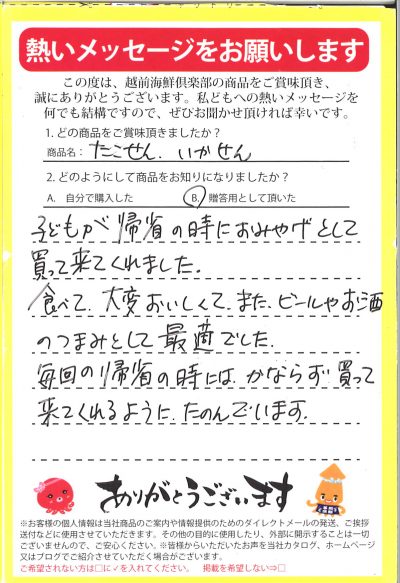 熱いメッセージをお願いします
この度は、越前海鮮倶楽部の商品をご賞味頂き、
誠にありがとうございます。私どもへの熱いメッセージを
何でも結構ですので、ぜひお聞かせ頂ければ幸いです。
1. どの商品をご賞味頂きましたか？
商品名： たこせん．いかせん
2. どのようにして商品をお知りになりましたか？
A. 自分で購入した B. 贈答用として頂いた
子どもが帰省の時におみやげとして
買って来てくれました．
食べて．大変おいしくて．また、ビールやお酒
のつまみとして最適でした．
毎回の帰省の時には．かならず買って
来てくれるように．たのんでいます．
ありがとうございます
※お客様の個人情報は当社商品のご案内や情報提供のためのダイレクトメールの発送、ご挨拶
送付などに使用させていただきます。その他の目的に使用したり、外部に開示することは一切
ございませんので、ご安心ください。※皆様からいただいたお声を当社カタログ、ホームページ
又はブログでご紹介させていただく場合がございます。
ご希望されない方は□に✓を入れてください。 掲載を希望しない⇒□